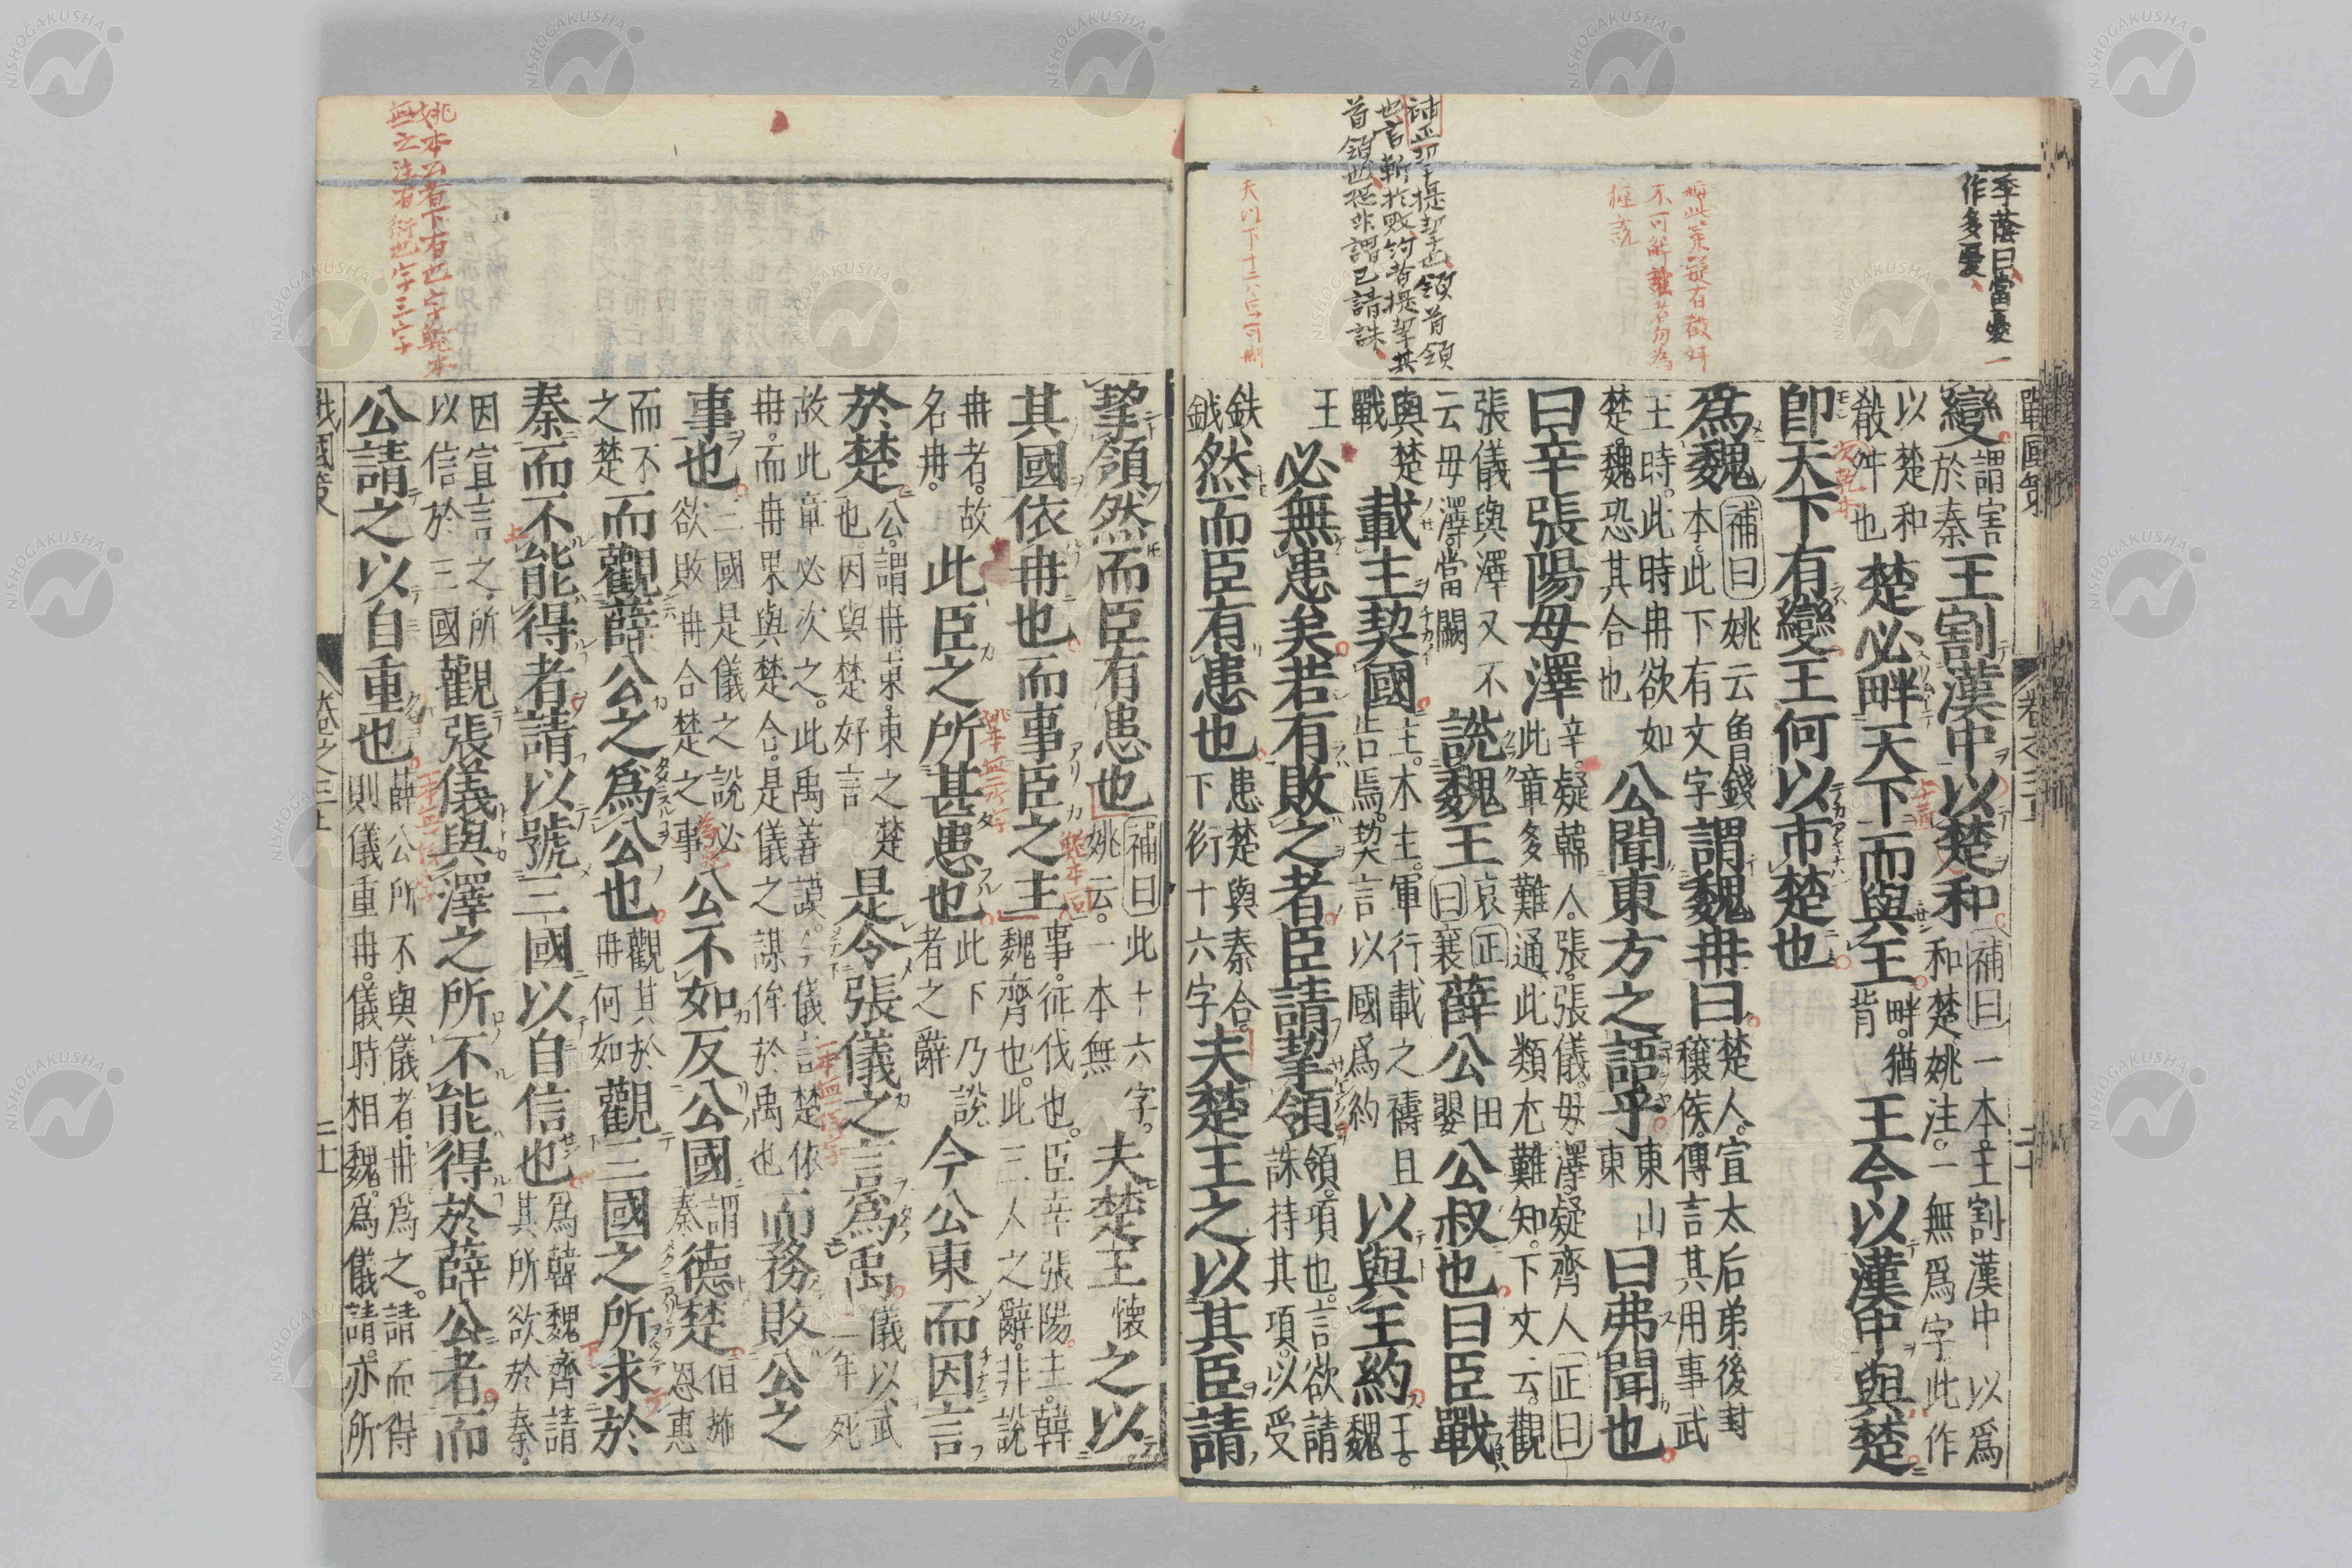 季蔭曰當憂
作多憂
補正
首領也恐非謂已請誅
夫以下十六字可刪
戰國策
變謂害於秦王割漢中以楚和補曰一本主割漢中以爲
以楚和和楚姚注一無爲字此作
殽舛也楚必畔天下而與王畔猶背王今以漢中與楚
卽天下有變王何以市楚也
爲魏補曰姚云曾錢本此下有文字謂魏冉曰楚人宣太后弟後封穰侯傳言其用事武
王時此時冉欲如楚魏恐其合也公聞東方之語乎東山東曰弗聞也
曰辛張陽毋澤辛疑韓人張張儀毋澤疑齊人正曰此章多難通此類尤難知下文云觀
張儀與澤又不云毋澤當闕說魏王哀正曰襄薛公田嬰公叔也曰臣戰
與楚戰載主契國主木主軍行載之禱且告焉契言以國爲約以與王約王魏
王必無患矣若有敗之者臣請挈領領項也言欲請誅持其項以受
鈇鉞然而臣有患也患楚與秦合下衍十六字夫楚王之以其臣請
挈領然而臣有患也補曰此十六字姚云一本無夫楚王懷之以
其國依冉也而事臣之主事征伐也臣辛張陽主韓魏齊也此三人之辭非說
冉者故名冉此臣之所甚患也此下乃說者之辭今公東而因言
於楚公謂冉東東之楚也因與楚好言是令張儀之言爲禹儀以武二年死
故此章必次之此禹善謨今儀言楚依冉而冉果與楚合是儀之謀侔於禹也而務敗公之
事也三國是儀之說必欲敗冉合楚之事公不如反公國謂秦德楚但施恩惠
而不之楚而觀薛公之爲公也觀其於冉何如觀三國之所求於
秦而不能得者請以號三國以自信也爲韓魏齊請其所欲於秦
因宣言之所以信於三國觀張儀與澤之所不能得於薛公者而
公請之以自重也薛公所不與儀者冉爲之請而得則儀重冉儀時相魏爲儀請亦所
姚本公者下有也字鮑本
無之注者衍也字三字